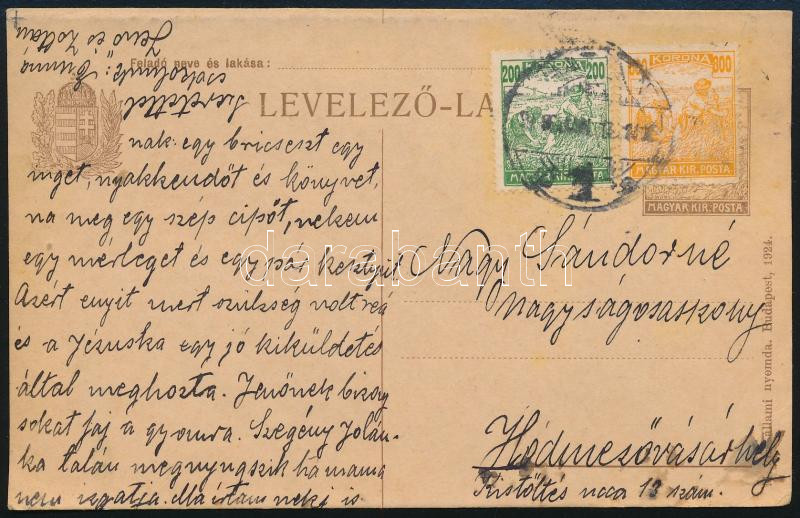 Jenő és Zoltán
Feladó neve és lakása:
csókolunk: Emmó
Szeretettel
LEVELEZŐ-LA
200 KORONA 200
MAGYAR KIR. POSTA
KORONA 800
MAGYAR KIR. POSTA
MAGYAR KIR. POSTA
nak egy bricseszt egy
inget, nyakkendőt és könyvet,
na meg egy szép cipőt, nekem
egy mérleget és egy pár kesztyűt
Azért enyit mert szükség volt reá
és a Jézuska egy jó kiküldetés
által meghozta. Jenőnek bizony
sokat fáj a gyomra. Szegény Jolán-
ka talán megnyugszik ha mama
nem izgatja. Ma írtam neki is
Nagy Sándorné
Nagyságosasszony
Hódmezővásárhely
Kistöltés ucca 13 szám.
állami nyomda. Budapest, 1924.
darabanth